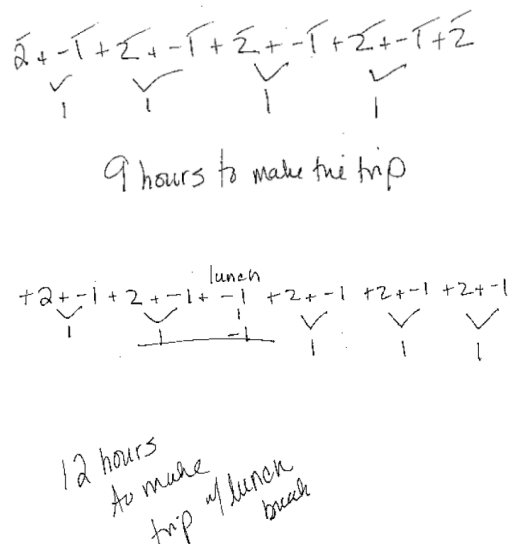 2 + -1 + 2 + -1 + 2 + -1 + 2 + -1 + 2
1 1 1 1
9 hours to make the trip
lunch
+2 + -1 + 2 + -1 + -1 + 2 + -1 + 2 + -1 + 2 + -1
1 1 -1 1 1 1
12 hours
to make
trip w/ lunch
break